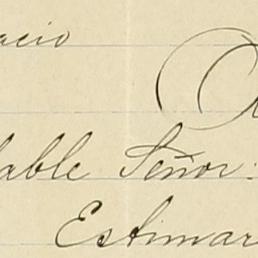 acio
lable Señor:
Estimar